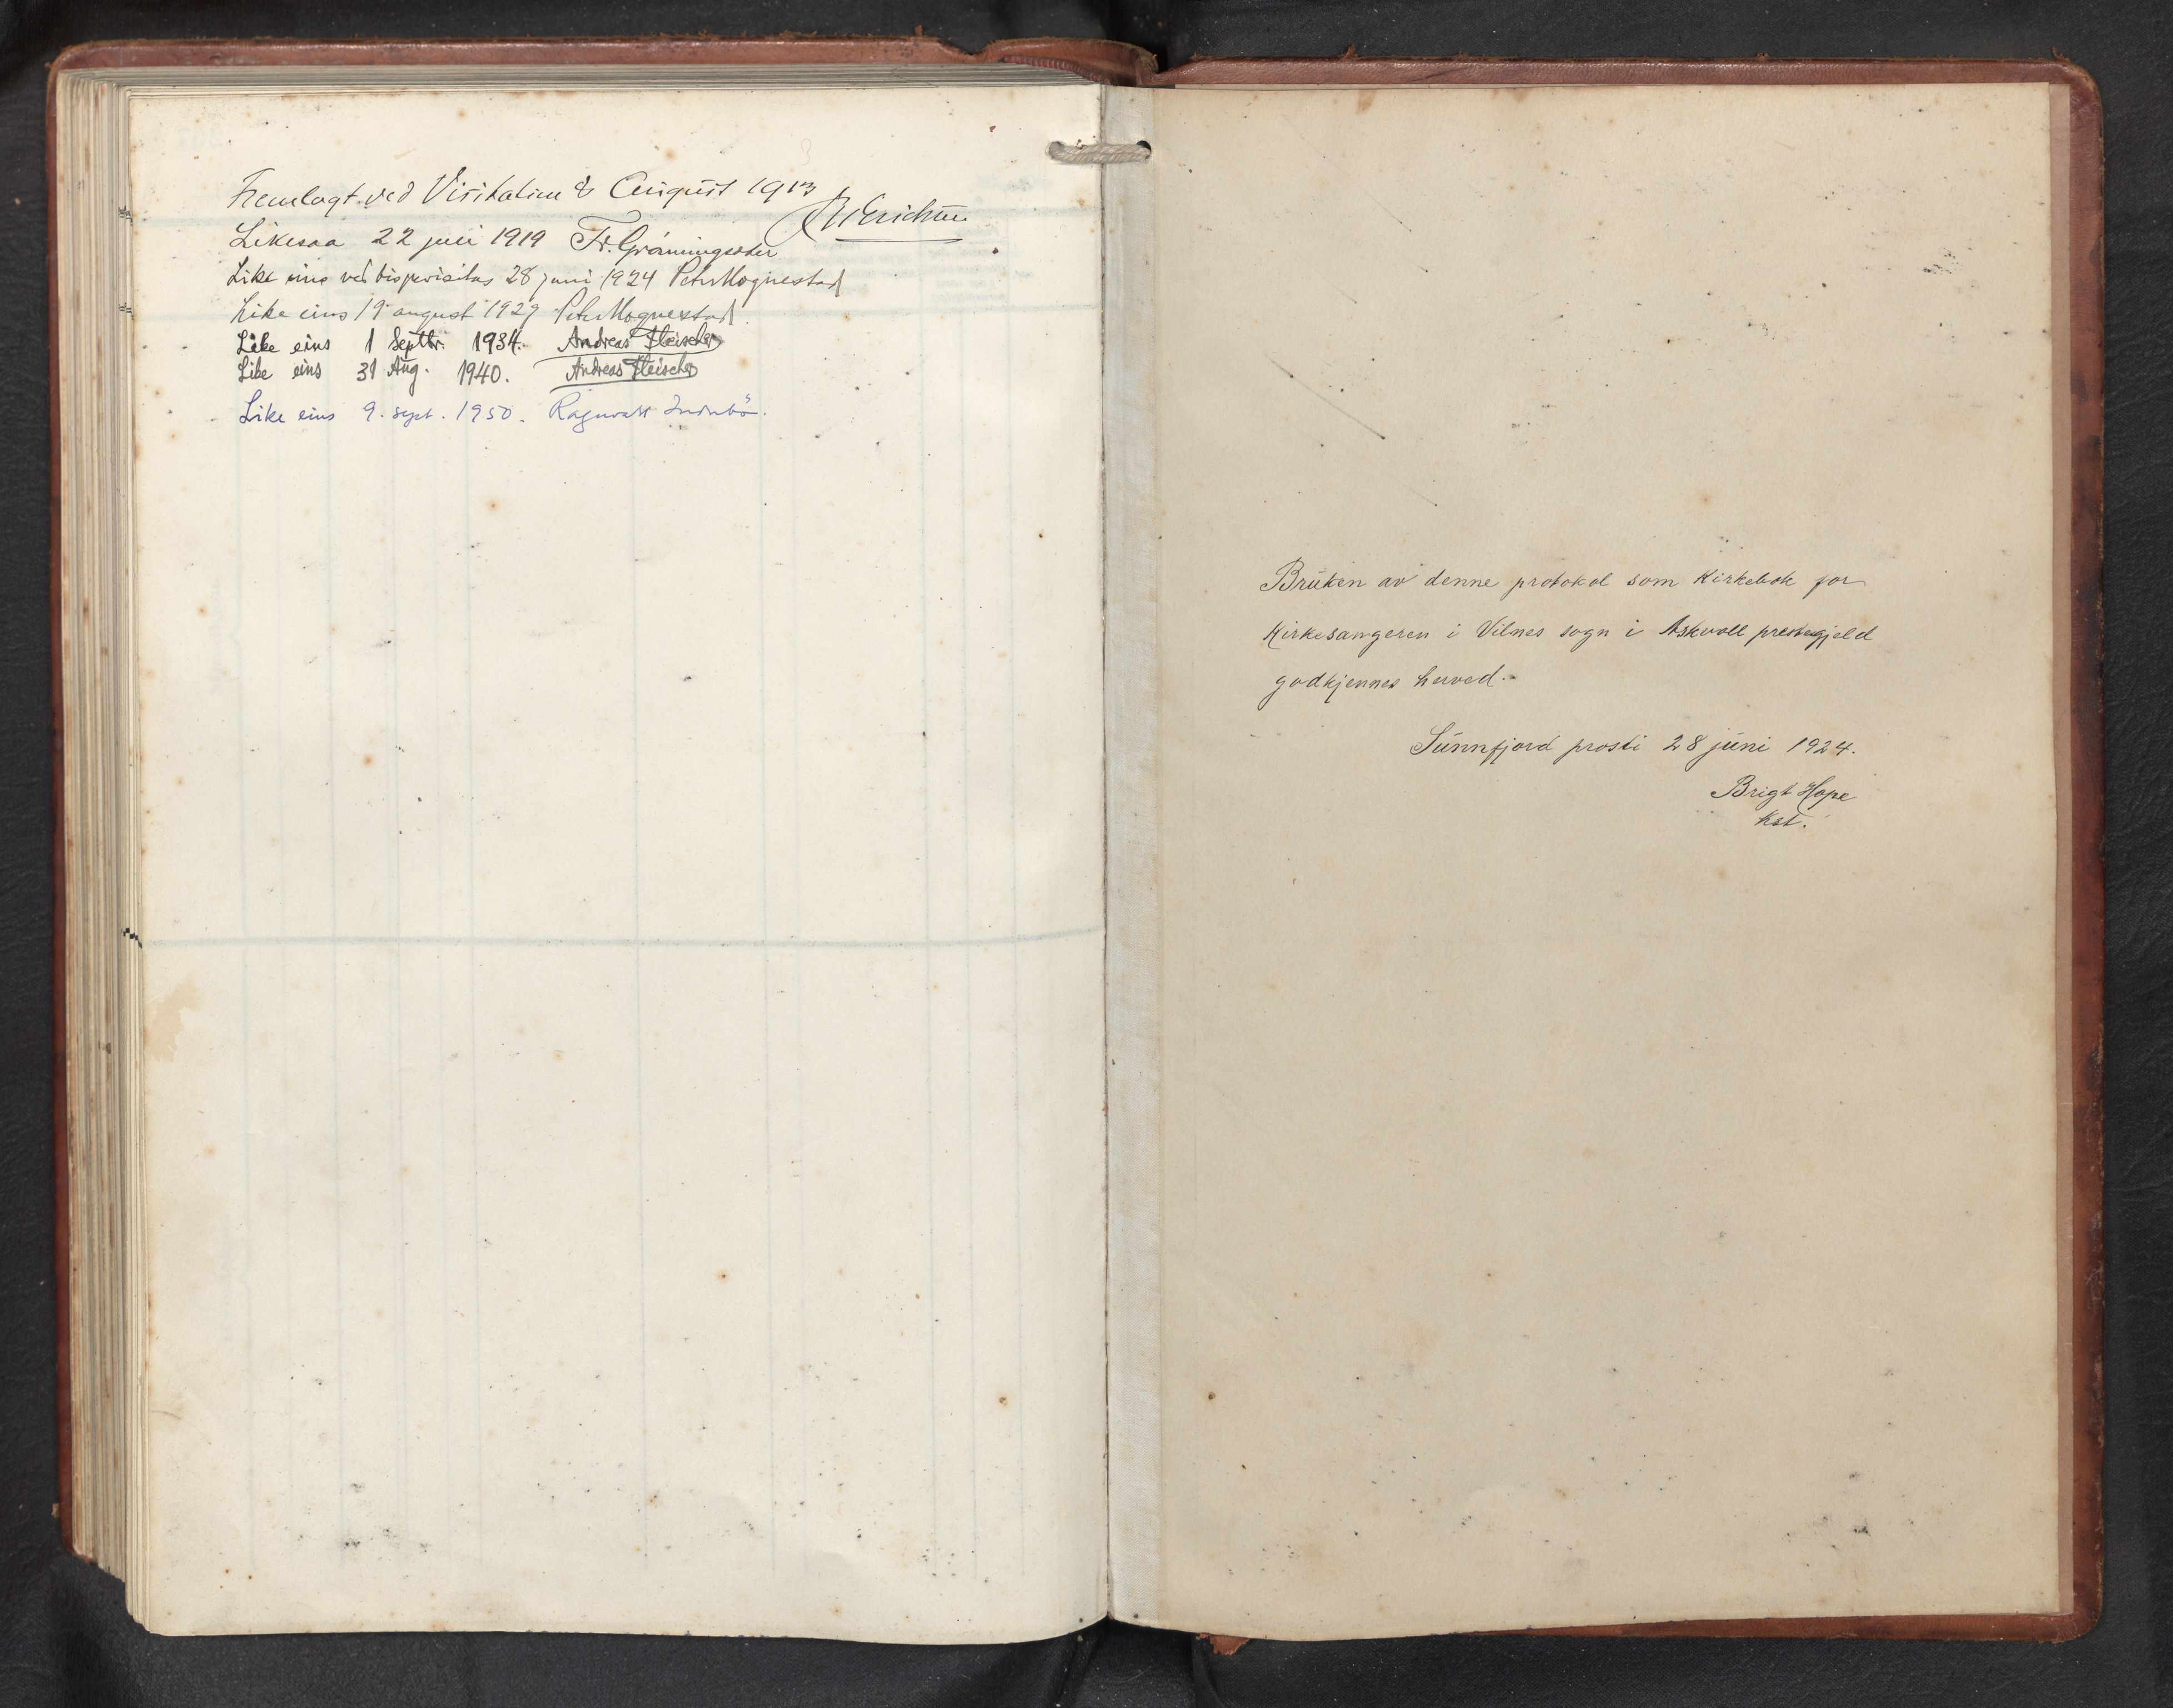 Fremlagt ved Visitatien 8 August 1913
Erichsen
Likesaa 22 juli 1919 Fr. Grønningsæter
Like eins ved bispevisitas 28 juni 1924 Peter Hognestad
Like eins 19 august 1929 Peter Hognestad.
Like eins 1 Septbr. 1934. Andreas Fleischer
Like eins 31 Aug. 1940. Andreas Fleischer
Like eins 9. sept. 1950. Ragnvald Indrebö.
Bruken av denne protokol som kirkebok for
kirkesangeren i Vilnes sogn i Askvoll prestegjeld
godkjennes herved.
Sunnfjord prosti 28 juni 1924.
Brigt Hope
kst.